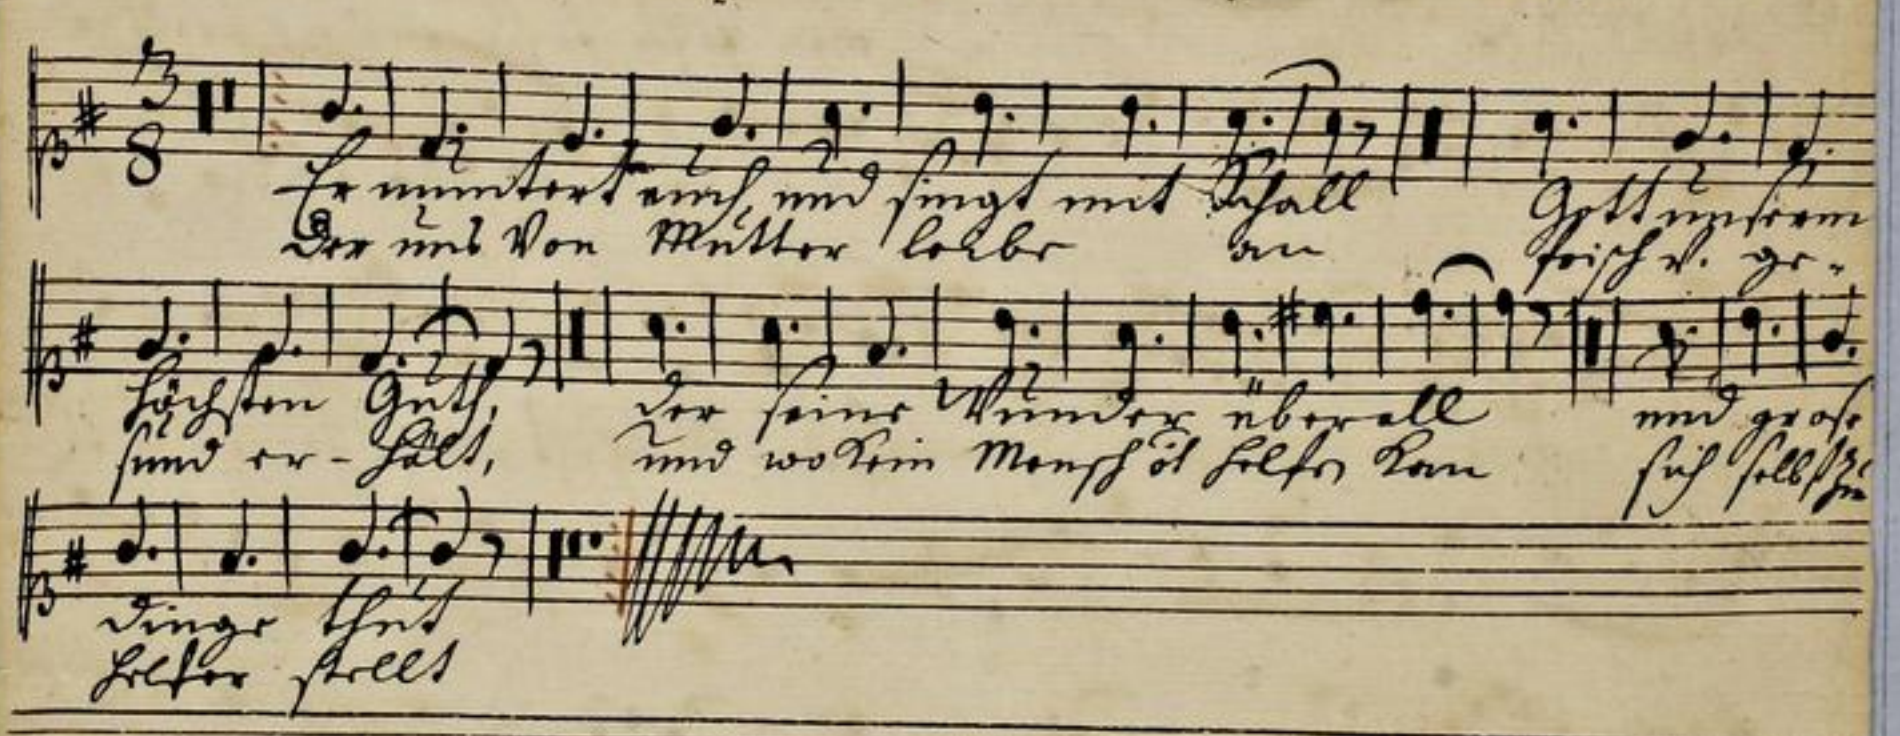 3
8
Er muntert euch, und singt mit Schall Gott unserm
Der uns Von Mutter leibe an frisch v. ge-
höchsten Guth, der seine Wunder überall und große
sund er-hält, und wo kein Mensch öt helfen kan sich selbst zu
dinge thut
helfer stellt